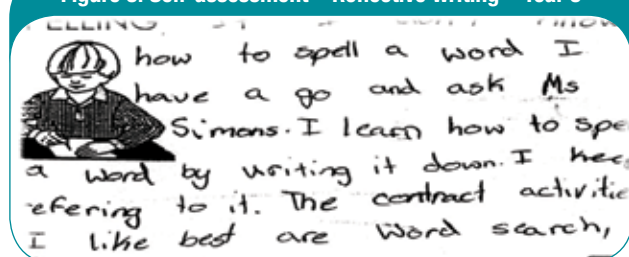 how to spell a word I
have a go and ask Ms
Simons. I learn how to spe
a word by writing it down. I kee
efering to it. The contract activitie
I like best are Word search,